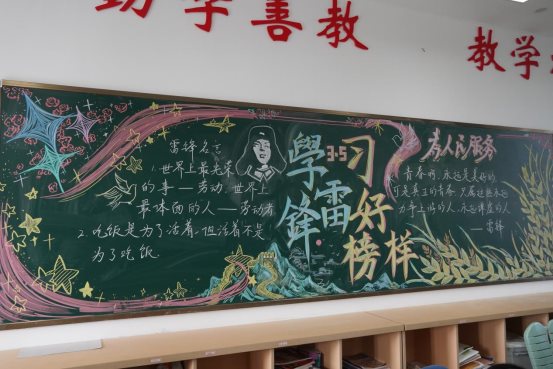 勤学善教
教学
雷锋名言
1.世界上最光荣
的事——劳动，世界上
最体面的人——劳动者
2.吃饭是为了活着，但活着不是
为了吃饭.
學習
3·5
雷鋒
好
榜样
为人民服务
青春啊，永远是美好的
可是真正的青春，只属于这些永远
力争上游的人，永远谦虚的人
——雷锋